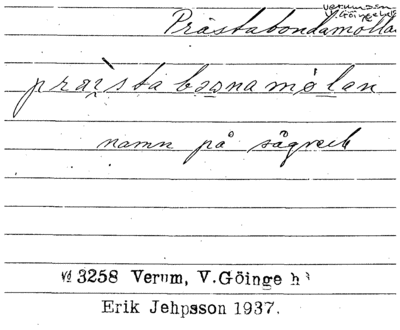 Verums sn
V. Göinge hd
Prästabondamölla
präistaboonamölan
namn på sågverk
3258 Verum, V.Göinge h
Erik Jehpsson 1937.